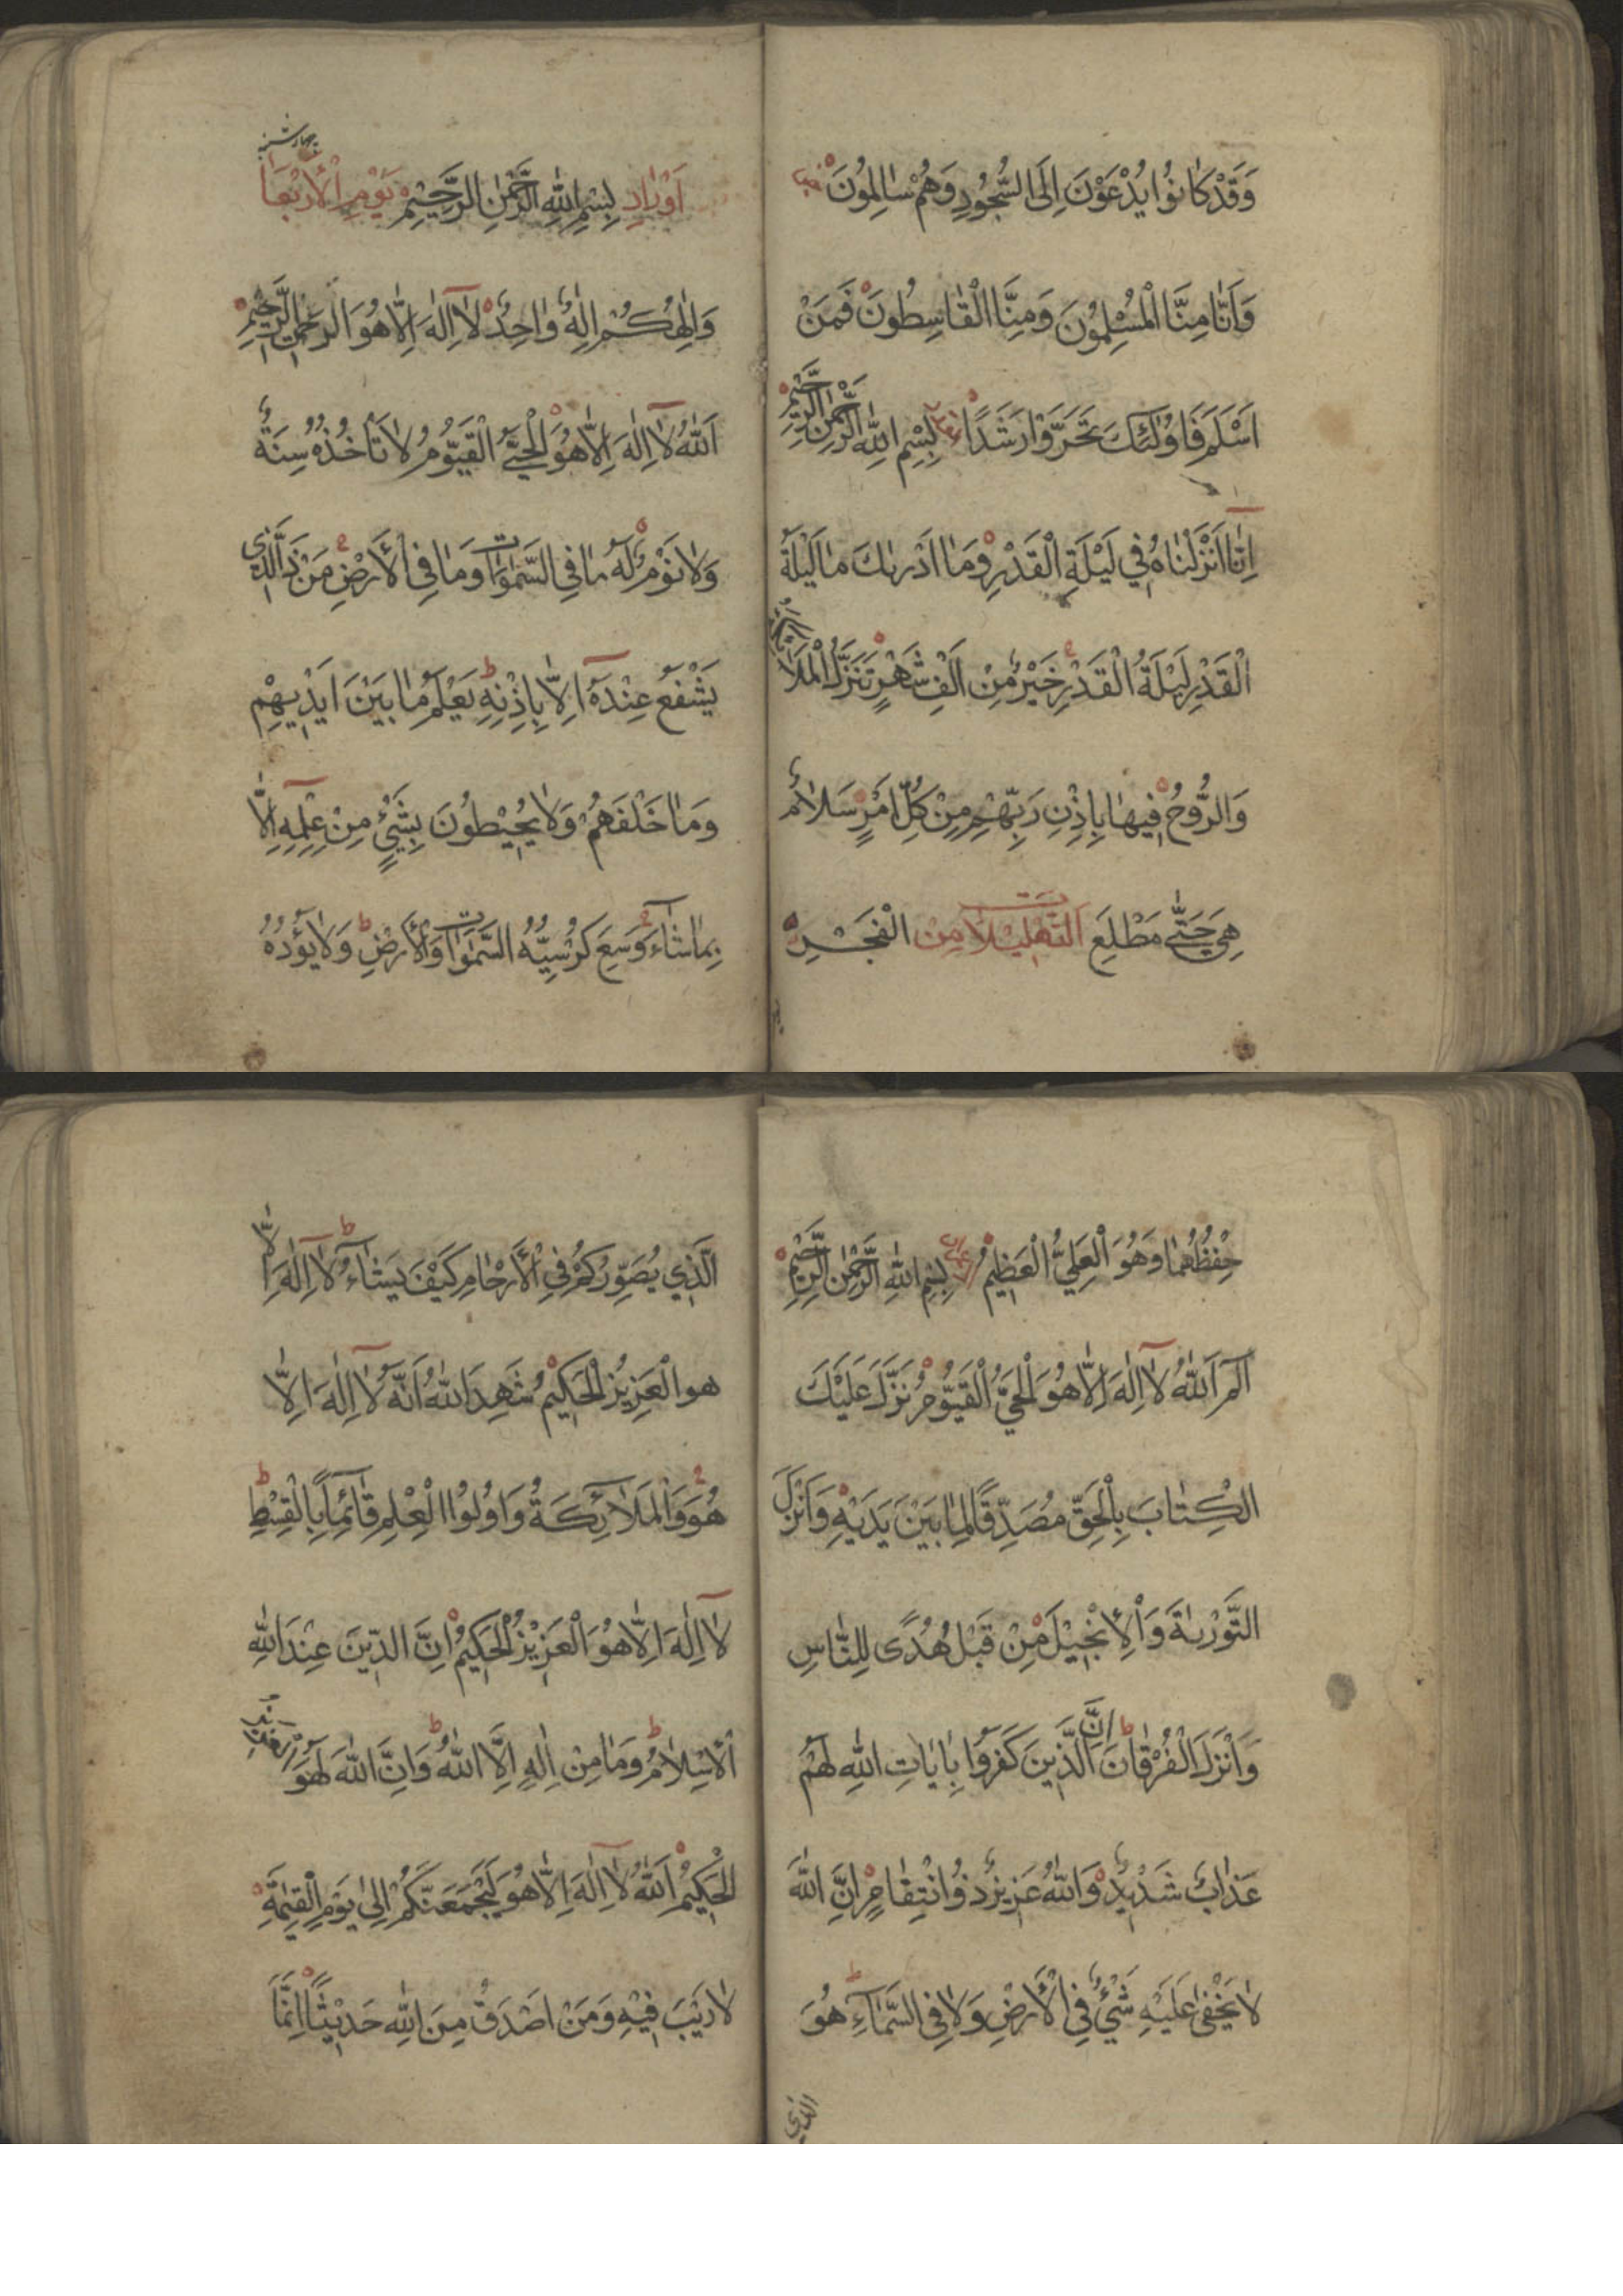 وَقَدْ كَانُوا يُدْعَوْنَ اِلَى السُّجُودِ وَهُمْ سَالِمُونَ
وَاَنَّا مِنَّا الْمُسْلِمُوْنَ وَمِنَّا الْقَاسِطُونَ فَمَنْ
اَسْلَمَ فَاُولٰئِكَ تَحَرَّوْا رَشَدًا بِسْمِ اللهِ الرَّحْمٰنِ الرَّحِيْمِ
اِنَّا اَنْزَلْنَاهُ فِي لَيْلَةِ الْقَدْرِ وَمَا اَدْرٰىكَ مَا لَيْلَةُ
الْقَدْرِ لَيْلَةُ الْقَدْرِ خَيْرٌ مِنْ اَلْفِ شَهْرٍ تَنَزَّلُ الْمَلَائِكَةُ
وَالرُّوحُ فِيهَا بِاِذْنِ رَبِّهِمْ مِنْ كُلِّ اَمْرٍ سَلَامٌ
هِيَ حَتّٰى مَطْلَعِ التَّهْلِيْلَات مِنْ الْفَجْرِ
چهارشنبه
اَوْرَادِ بِسْمِ اللهِ الرَّحْمٰنِ الرَّحِيْمِ يَوْمِ الْاَرْبَعَا
وَاِلٰهُكُمْ اِلٰهٌ وَاحِدٌ لَا اِلٰهَ اِلَّا هُوَ الرَّحْمٰنُ الرَّحِيْمُ
اَللّٰهُ لَا اِلٰهَ اِلَّا هُوَ الْحَيُّ الْقَيُّوْمُ لَا تَأْخُذُهُ سِنَةٌ
وَلَا نَوْمٌ لَهُ مَا فِي السَّمٰوَات وَمَا فِي الْاَرْضِ مَنْ ذَا الَّذِي
يَشْفَعُ عِنْدَهُ اِلَّا بِاِذْنِهِ يَعْلَمُ مَا بَيْنَ اَيْدِيهِمْ
وَمَا خَلْفَهُمْ وَلَا يُحِيْطُونَ بِشَيْءٍ مِنْ عِلْمِهِ اِلَّا
بِمَا شَاءَ وَسِعَ كُرْسِيُّهُ السَّمٰوَات وَالْاَرْضِ وَلَا يَؤُدُهُ
حِفْظُهُمَا وَهُوَ الْعَلِيُّ الْعَظِيْمُ بِسْمِ اللهِ الرَّحْمٰنِ الرَّحِيْمِ
الٓمٓ اَللّٰهُ لَا اِلٰهَ اِلَّا هُوَ الْحَيُّ الْقَيُّوْمُ نَزَّلَ عَلَيْكَ
الْكِتَابَ بِالْحَقِّ مُصَدِّقًا لِمَا بَيْنَ يَدَيْهِ وَاَنْزَلَ
التَّوْرٰيةَ وَالْاِنْجِيْلَ مِنْ قَبْلُ هُدًى لِلنَّاسِ
وَاَنْزَلَ الْفُرْقَانَ اِنَّ الَّذِينَ كَفَرُوا بِاٰيَاتِ اللهِ لَهُمْ
عَذَابٌ شَدِيْدٌ وَاللّٰهُ عَزِيزٌ ذُو انْتِقَامٍ اِنَّ اللّٰهَ
لَا يَخْفٰى عَلَيْهِ شَيْءٌ فِي الْاَرْضِ وَلَا فِي السَّمَاءِ هُوَ
الذي
الَّذِي يُصَوِّرُكُمْ فِي الْاَرْحَامِ كَيْفَ يَشَاءُ لَا اِلٰهَ اِلَّا
هُوَ الْعَزِيزُ الْحَكِيْمُ شَهِدَ اللّٰهُ اَنَّهُ لَا اِلٰهَ اِلَّا
هُوَ وَالْمَلَائِكَةُ وَاُولُوا الْعِلْمِ قَائِمًا بِالْقِسْطِ
لَا اِلٰهَ اِلَّا هُوَ الْعَزِيْزُ الْحَكِيمُ اِنَّ الدِّيْنَ عِنْدَ اللهِ
الْاِسْلَامُ وَمَا مِنْ اِلٰهٍ اِلَّا اللّٰهُ وَاِنَّ اللّٰهَ لَهُوَ الْعَزِيْزُ
الْحَكِيْمُ اَللّٰهُ لَا اِلٰهَ اِلَّا هُوَ لَيَجْمَعَنَّكُمْ اِلٰى يَوْمِ الْقِيٰمَةِ
لَا رَيْبَ فِيْهِ وَمَنْ اَصْدَقُ مِنَ اللهِ حَدِيْثًا اِنَّمَا